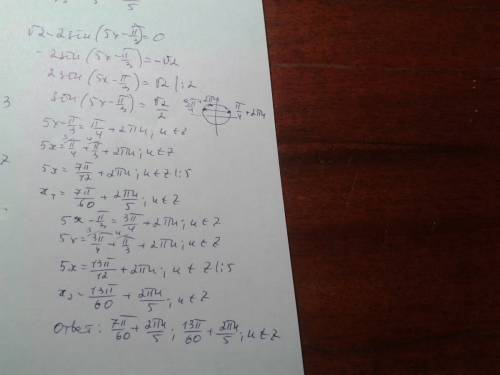 5
√2-2sin(5x-π/3)=0
-2sin(5x-π/3)=-√2
2sin(5x-π/3)=√2 |:2
3
sin(5x-π/3)=√2/2
π/4+2πn
5x-π/3=π/4+2πn, n∈Z
5x=π/4+π/3+2πn; n∈Z
5x=7π/12+2πn; n∈Z |:5
x₁=7π/60+2πn/5; n∈Z
5x-π/3=3π/4+2πn; n∈Z
5x=3π/4+π/3+2πn; n∈Z
5x=13π/12+2πn; n∈Z |:5
x₂=13π/60+2πn/5; n∈Z
Ответ: 7π/60+2πn/5; 13π/60+2πn/5; n∈Z